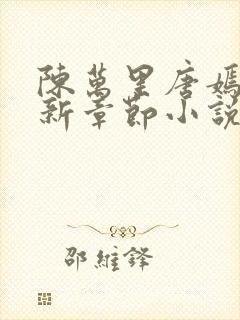 陳萬里唐嫣
新章節小說
邵維鋒